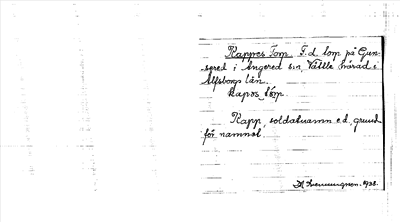 Rappes Tom. F. d. tom på Gun-
nered i Angered s:n, Vättle härad i
Älfsborgs län.
Rapp, soldatnamn e.d., grund
för namnet.
1938.